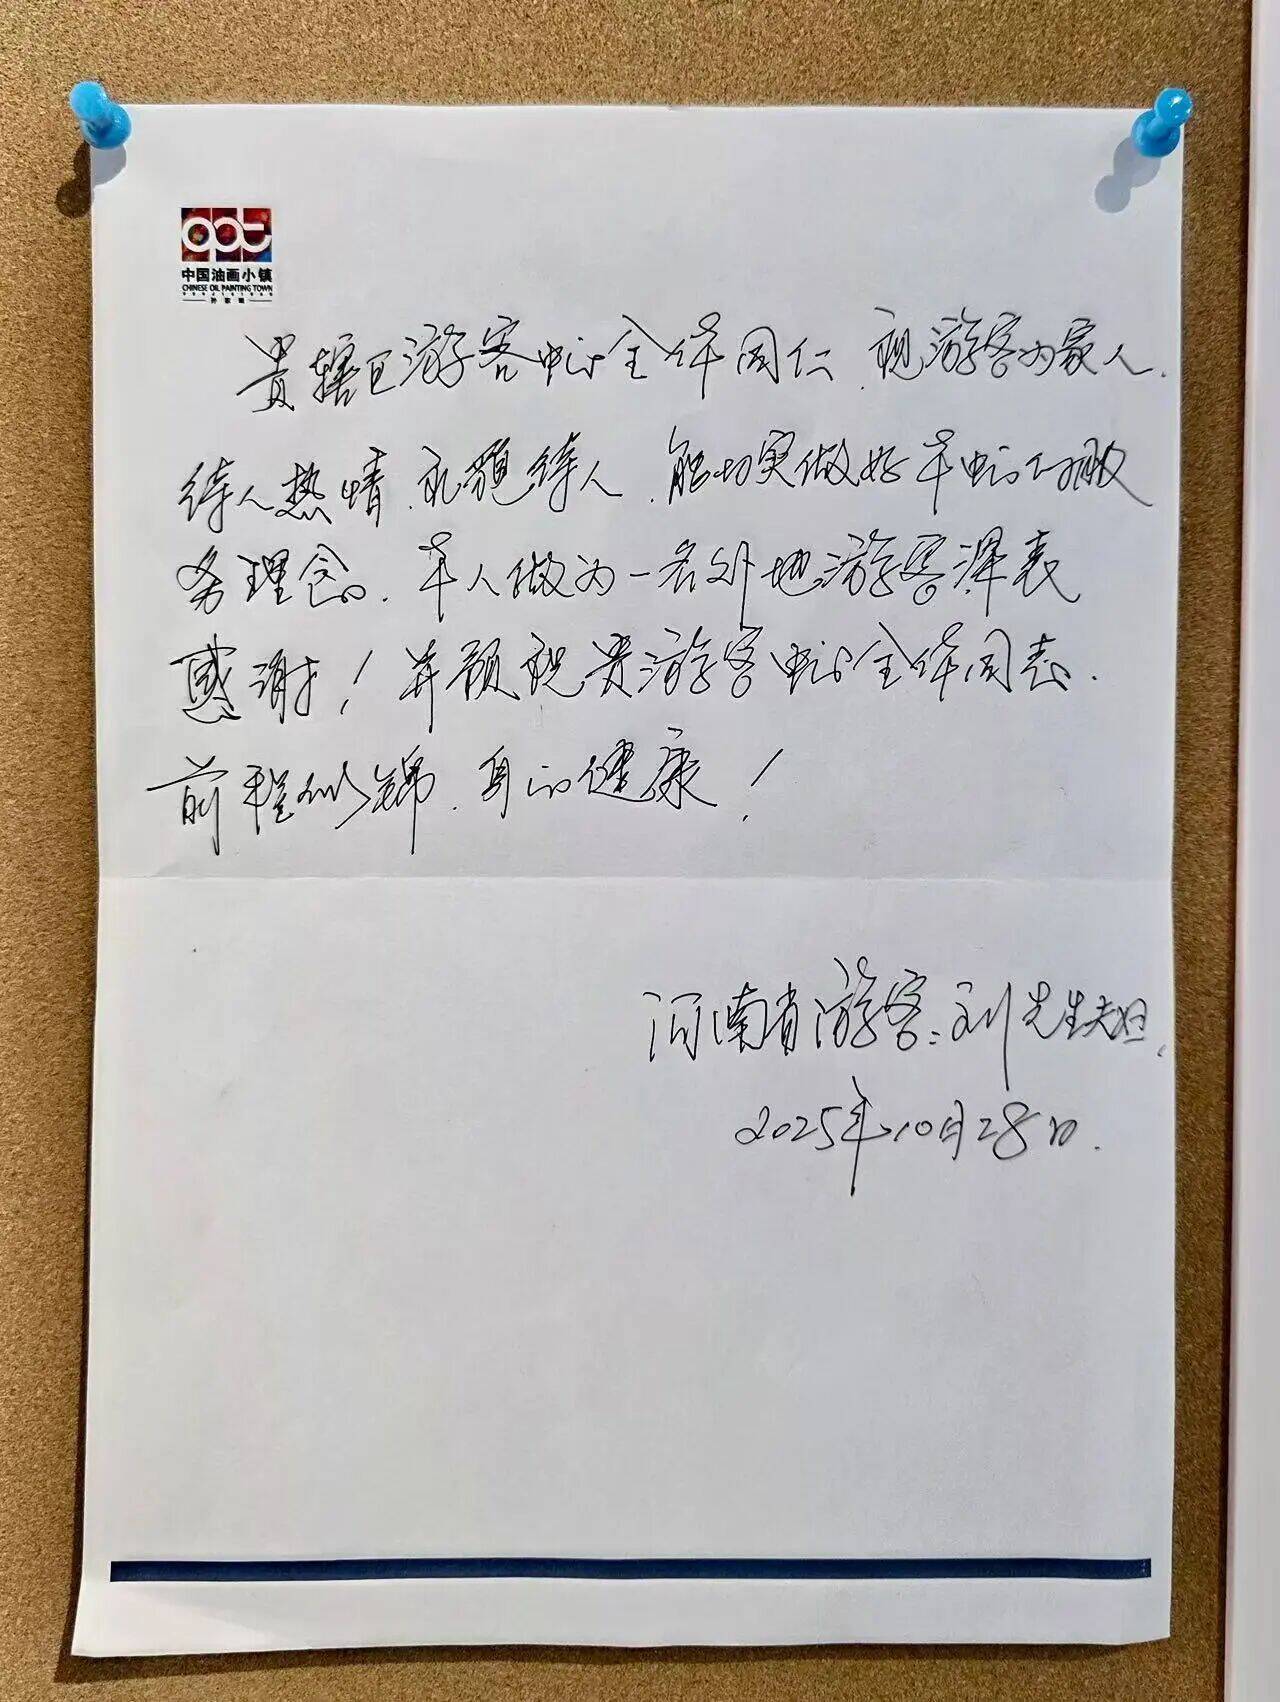 中国油画小镇
CHINESE OIL PAINTING TOWN
贵辖区游客中心全体同仁、视游客为家人、
待人热情、礼貌待人、能切实做好本中心的服
务理念。本人做为一名外地游客深表
感谢！并预祝贵游客中心全体同志、
前程似锦、身心健康！
河南省游客：刘先生夫妇、
2025年10月28日.